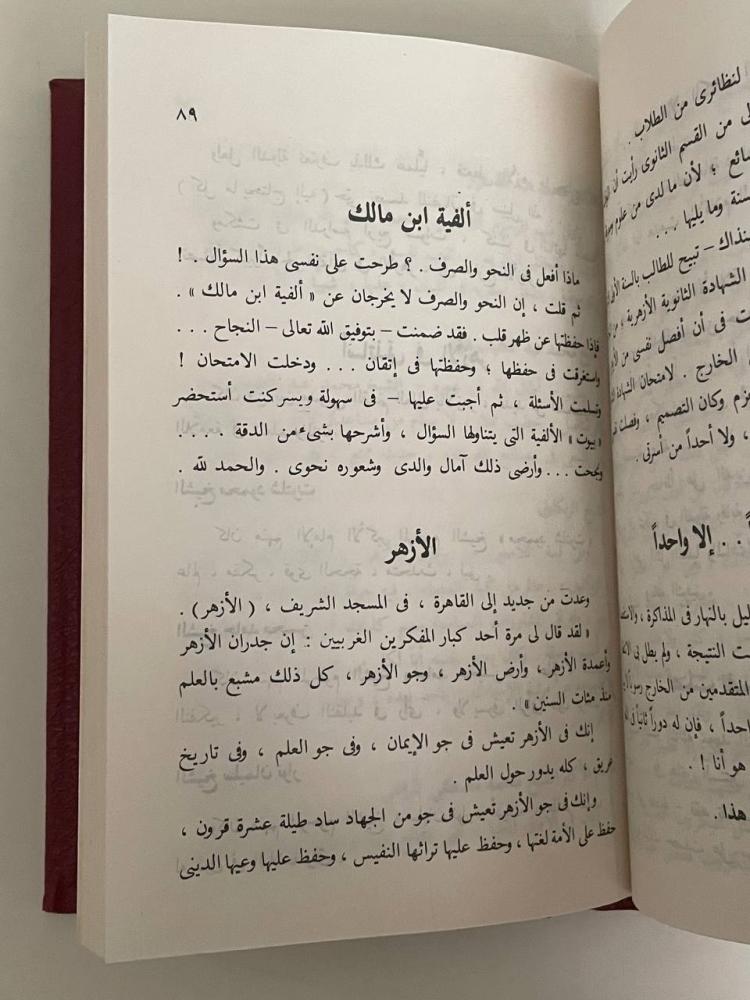 لنظائرى من الطلاب .
من القسم الثانوى رأيت أن
لأن ما لدى من علوم
وما يليها . . .
تبيح للطالب بالسنة
الشهادة الثانوية الأزهرية
فى أن أفضل نفسى من
الخارج . لامتحان
وكان التصميم ، وفصلت
، ولا أحداً من أسرتى .
. . إلا واحداً
بالنهار فى المذاكرة ،
النتيجة ، ولم يطل بى
المتقدمين من الخارج
فإن له دوراً ثانياً
هو أنا ! .
هذا .
٨٩
ألفية ابن مالك
ماذا أفعل فى النحو والصرف . ؟ طرحت على نفسى هذا السؤال . !
ثم قلت ، إن النحو والصرف لا يخرجان عن « ألفية ابن مالك » .
فإذا حفظتها عن ظهر قلب . فقد ضمنت – بتوفيق الله تعالى – النجاح . . .
واستغرقت فى حفظها ؛ وحفظتها فى إتقان . . . ودخلت الامتحان !
وتسلمت الأسئلة ، ثم أجبت عليها – فى سهولة ويسر كنت أستحضر
« بيوت » الألفية التى يتناولها السؤال ، وأشرحها بشىء من الدقة . . . .
ونجحت . . . وأرضى ذلك آمال والدى وشعوره نحوى . والحمد لله .
الأزهر
وعدت من جديد إلى القاهرة ، فى المسجد الشريف ، ( الأزهر ) .
« لقد قال لى مرة أحد كبار المفكرين الغربيين : إن جدران الأزهر
وأعمدة الأزهر ، وأرض الأزهر ، وجو الأزهر ، كل ذلك مشبع بالعلم
منذ مئات السنين » .
إنك فى الأزهر تعيش فى جو الإيمان ، وفى جو العلم ، وفى تاريخ
عريق ، كله يدور حول العلم .
وإنك فى جو الأزهر تعيش فى جو من الجهاد ساد طيلة عشرة قرون ،
حفظ على الأمة لغتها ، وحفظ عليها تراثها النفيس ، وحفظ عليها وعيها الدينى